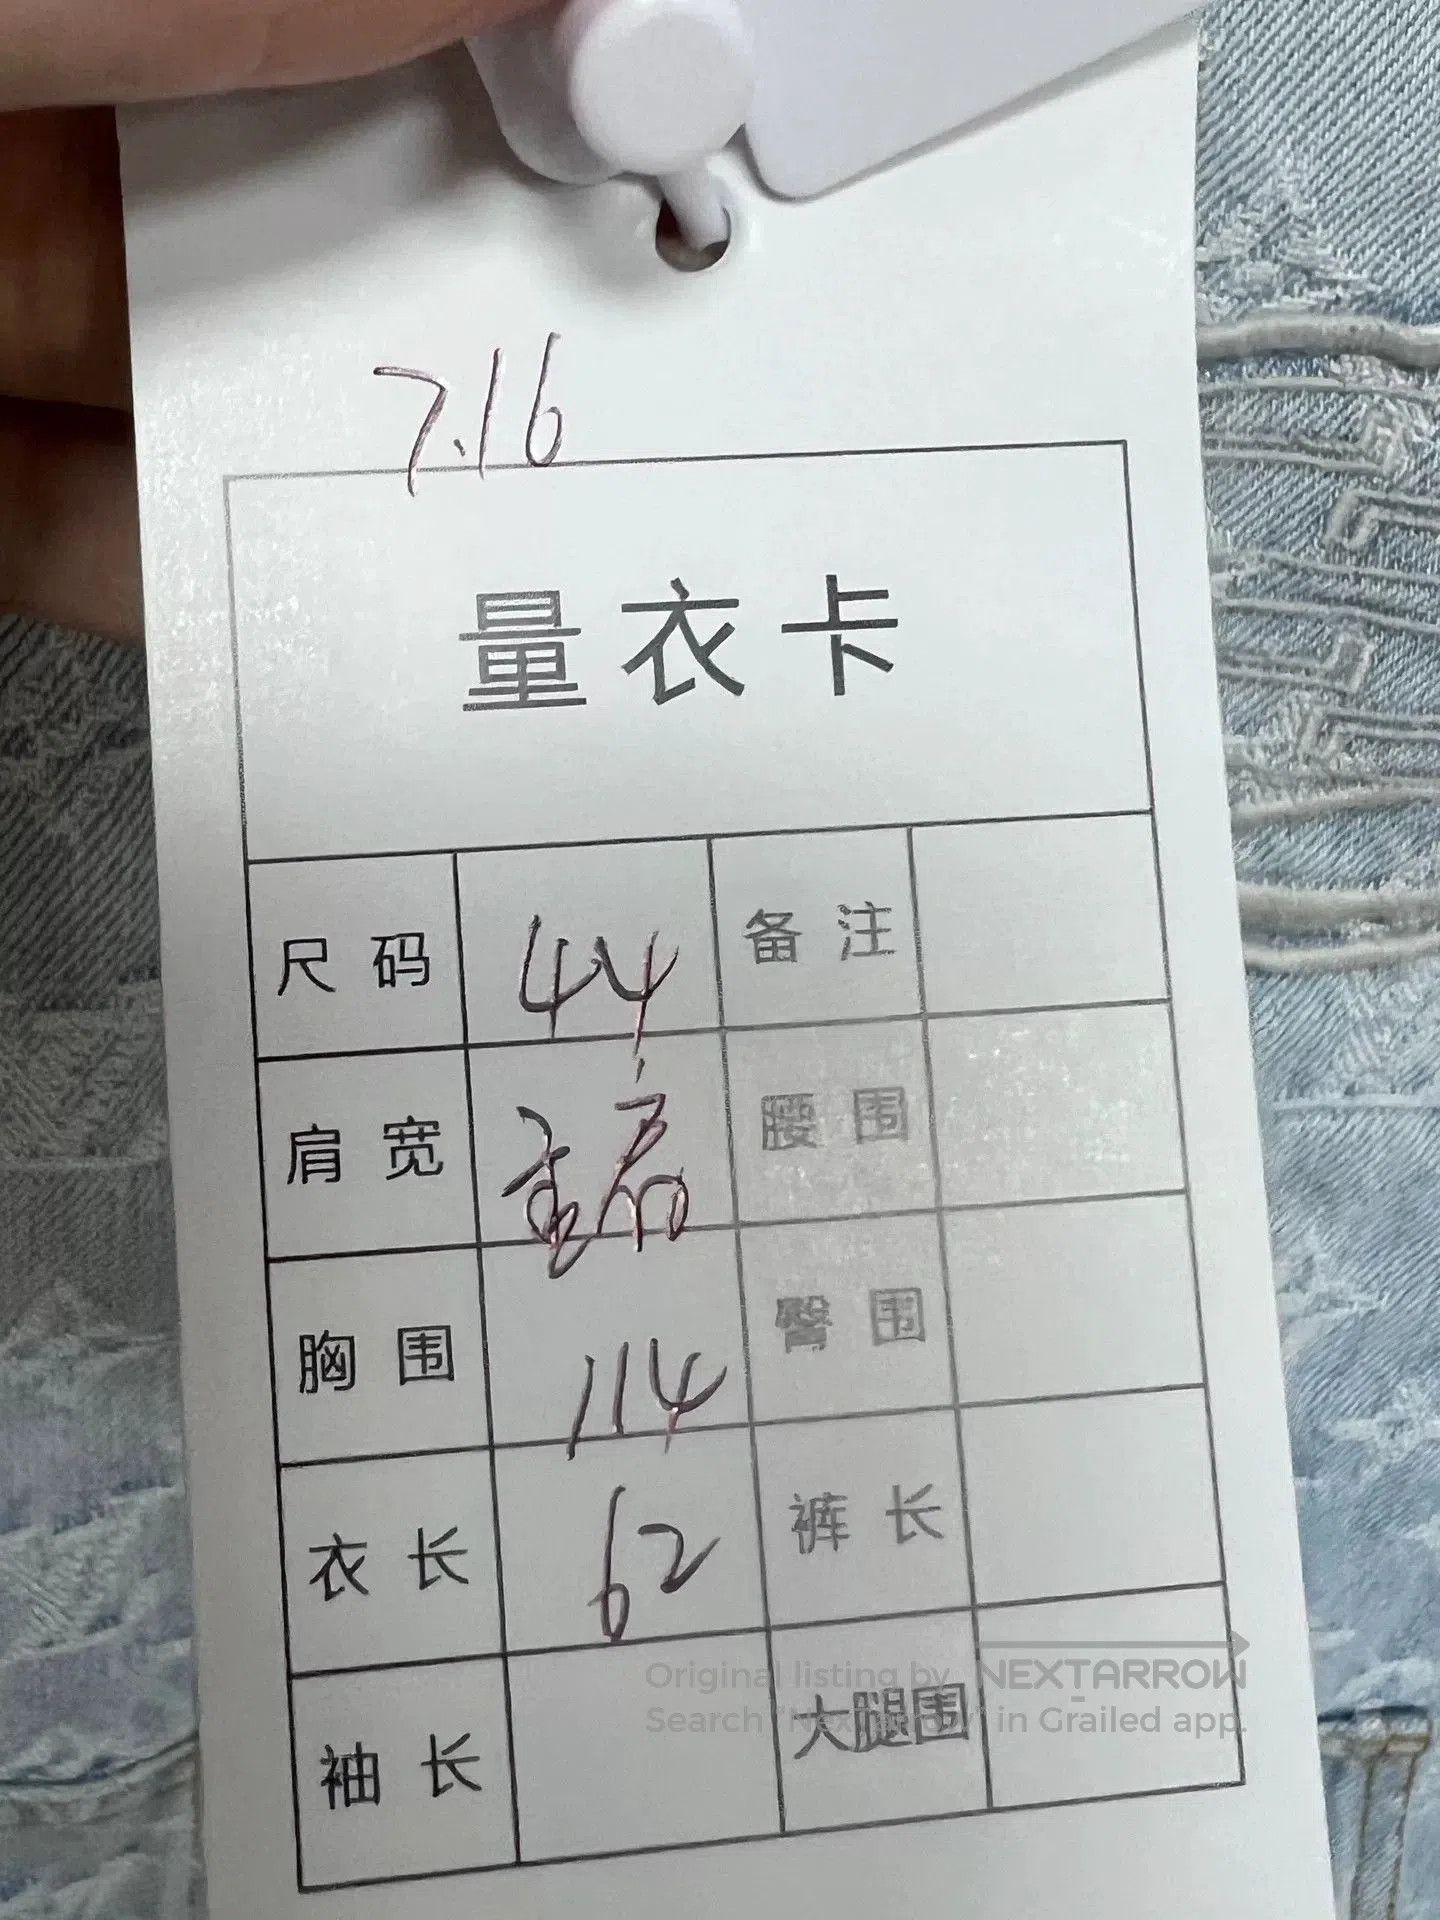 7.16
量衣卡
尺码 44 备注
肩宽 腰围
胸围 114 臀围
衣长 62 裤长
袖长 大腿围
Original listing by NEXTARROW
Search "Nextarrow" in Grailed app.